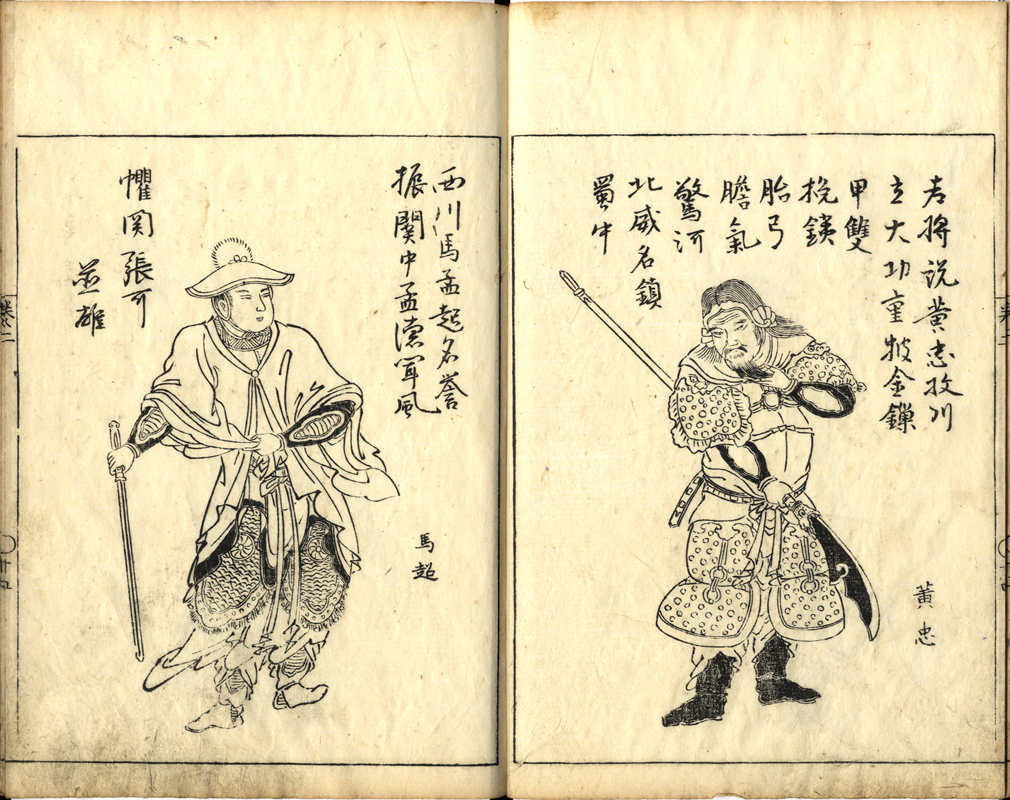 老将説黄忠收川
立大功重披金鏁
甲雙
挽鐵
胎弓
膽氣
驚河
北威名鎮
蜀中
黄忠
西川馬孟起名誉
振関中孟徳聞風
懼関張可
並雄
馬超